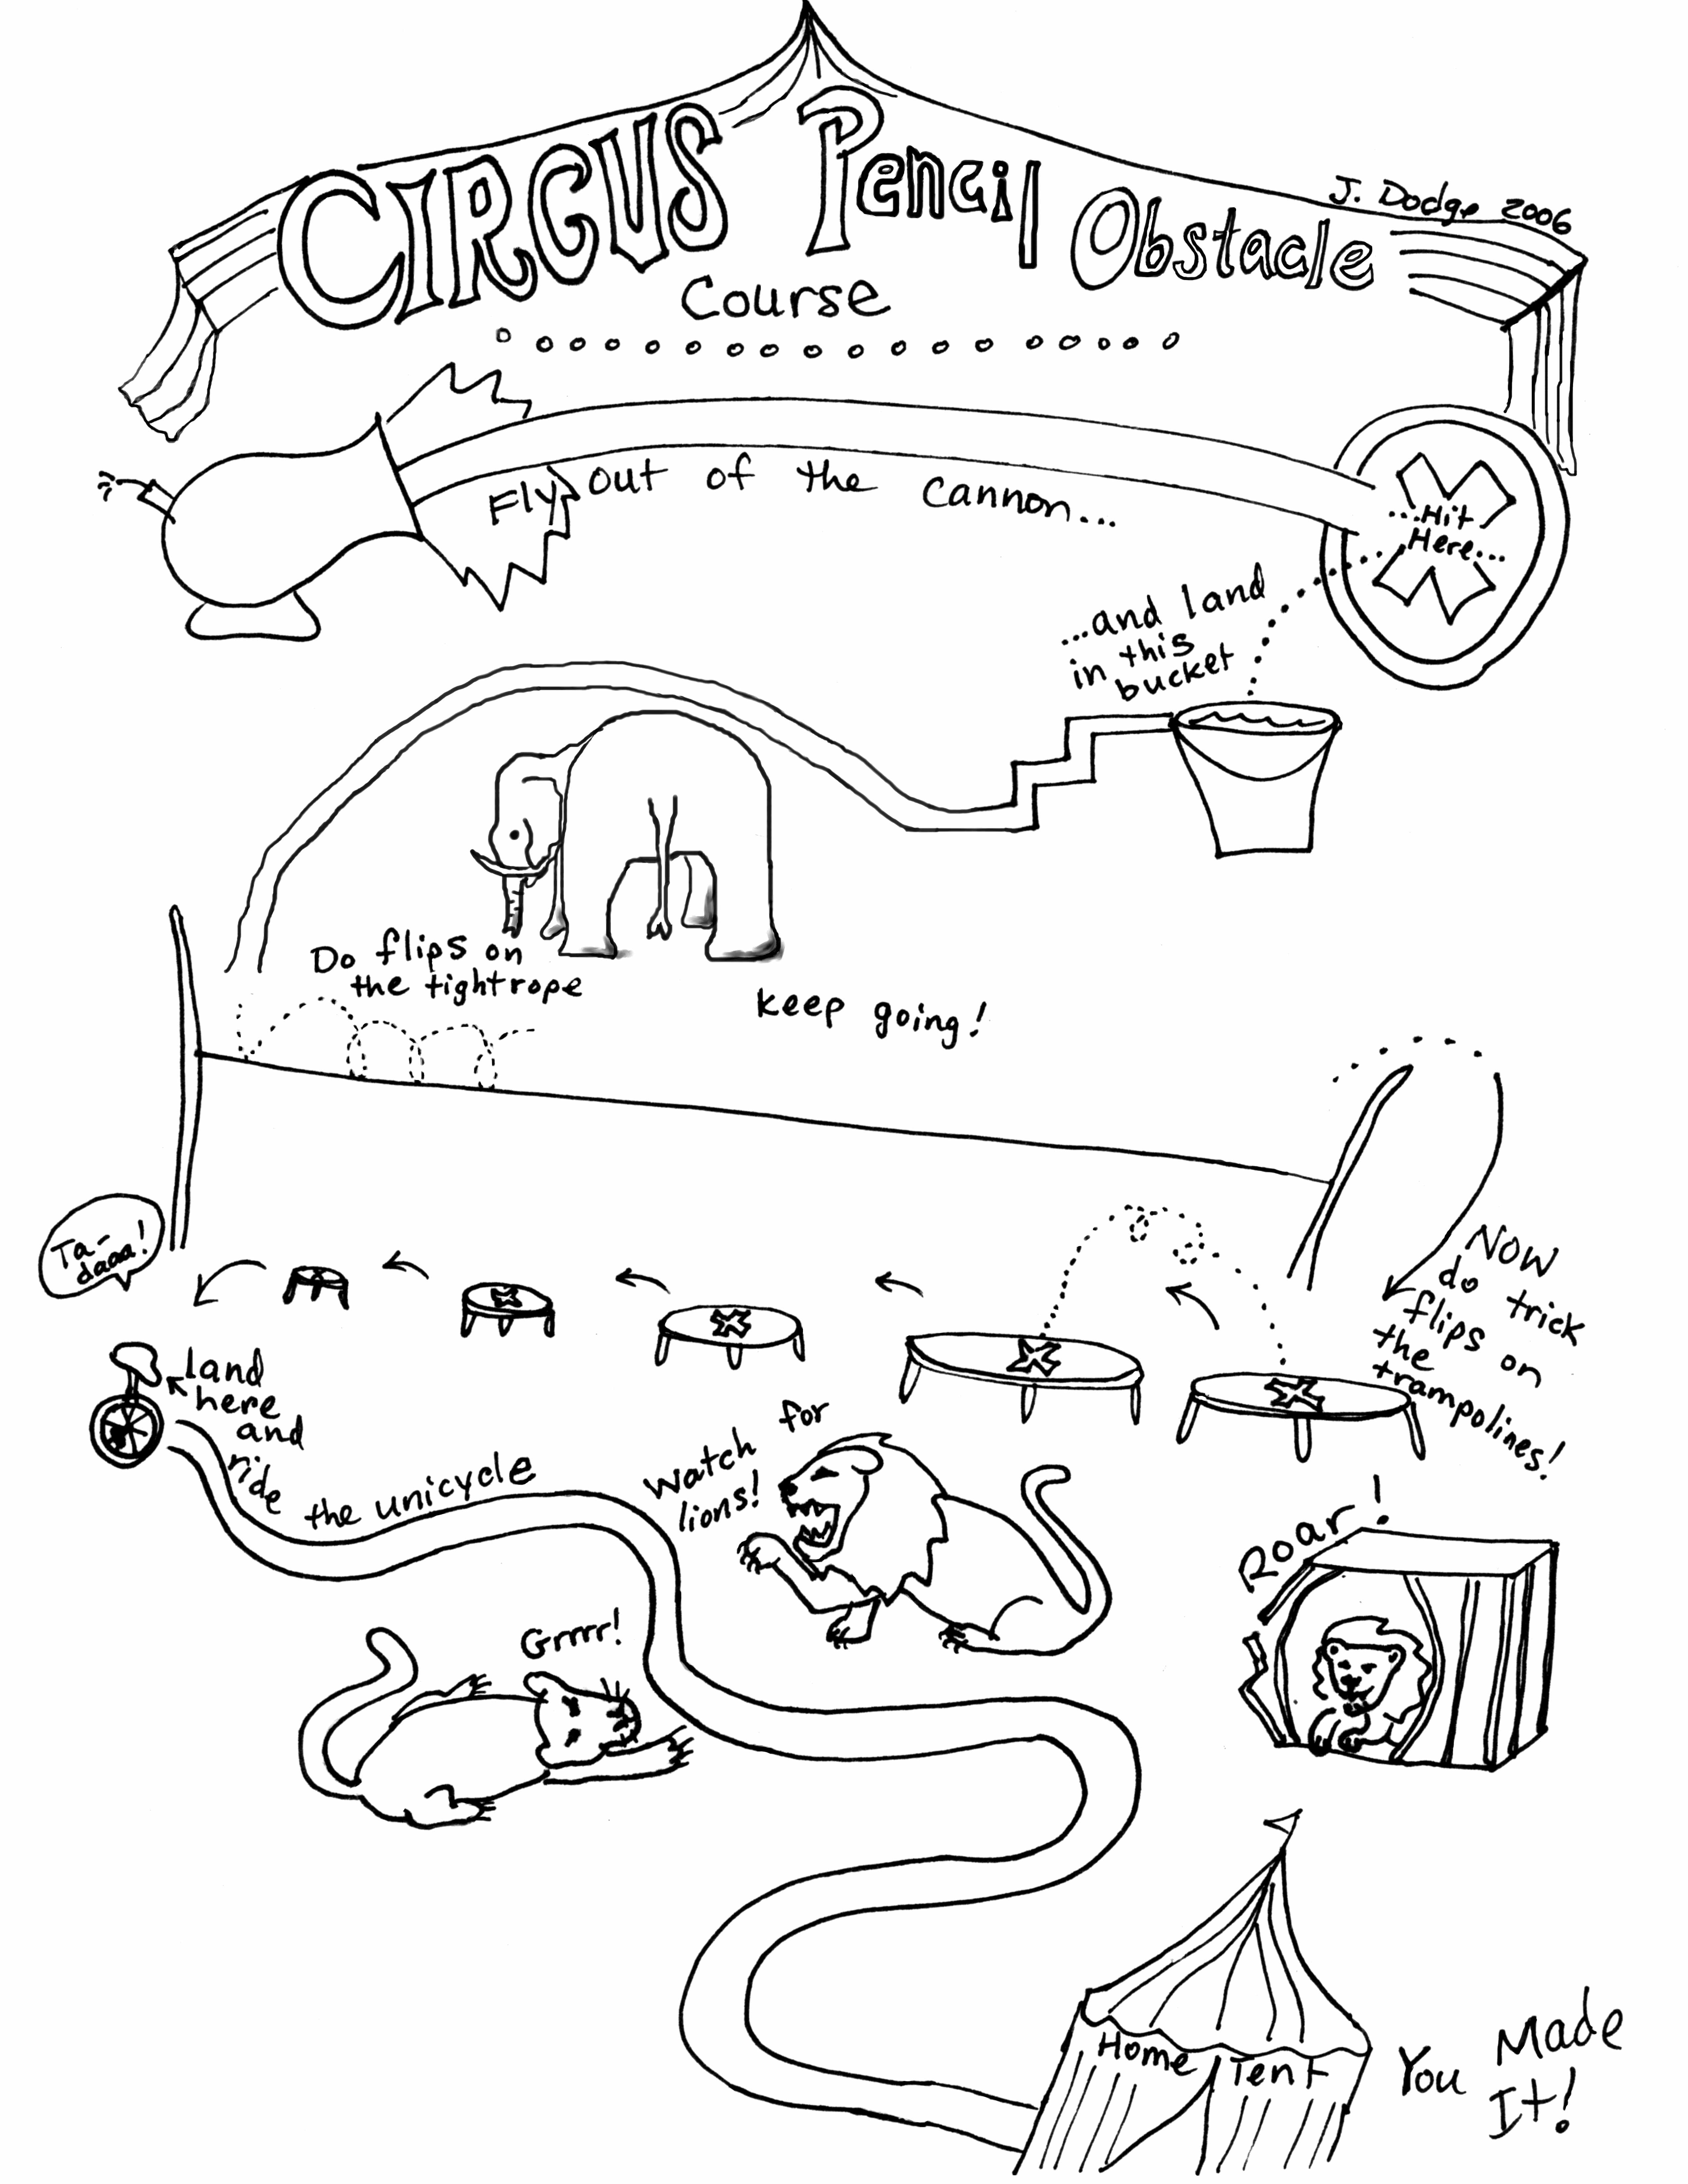 CIRCUS Pencil Obstacle
Course
J. Dodge 2006
Fly out of the cannon...
...Hit
Here...
...and land
in this
bucket
Do flips on
the tightrope
keep going!
NOW
do trick
flips on
the
trampolines!
Ta-
daaa!
land
here
and
ride the unicycle
Watch for
lions!
Roar!
Grrrr!
Home Tent
You Made
It!